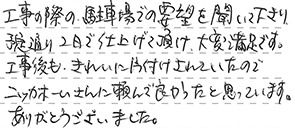 工事の際の駐車場での要望を聞いて下さり
予定通り2日で仕上げて頂け、大変満足です。
工事後も、きれいに片付けされていたので
ニッカホームさんに頼んで良かったと思っています。
ありがとうございました。